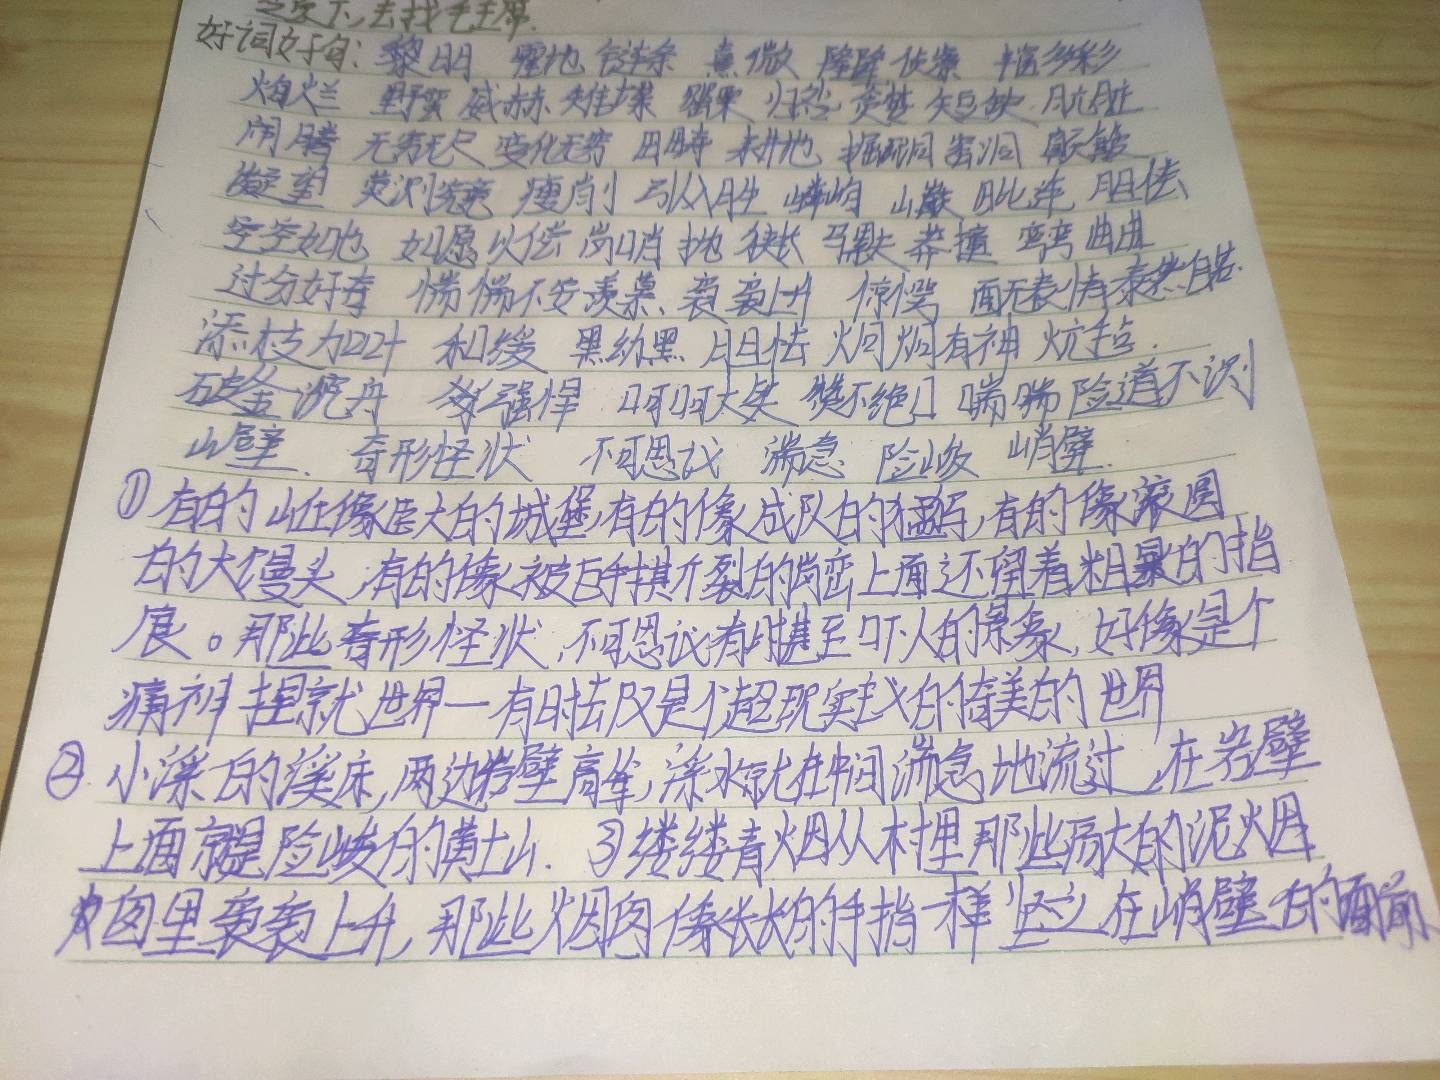 下，去找毛主席.
好词好句：黎明 霍地 熹微 隆隆 侦察 丰富多彩
灿烂 野蛮 威赫 雉堞 骡 归然 贫瘠 短缺 肮脏
闹腾 无穷无尽 变化无穷 田畴 耕地 掘洞 窑洞
凝望 瘦削 引人入胜 嶙峋 山巅 毗连 胆怯
空空如也 如愿以偿 岗哨 抛 狭长 莽撞 弯弯曲曲
过分好奇 惴惴不安 羡慕、袅袅上升 惊愕 面无表情 泰然自若.
添枝加叶 和缓 黑幼黑 胆怯 炯炯有神 炕毡.
破釜沉舟 强悍 呵呵大笑 赞不绝口 喘喘 险道不识
山壁. 奇形怪状 不可思议 湍急 险峻 峭壁.
①有的山丘像巨大的城堡，有的像成队的猛犸，有的像滚圆
的大馒头，有的像被巨手撕裂的岗峦上面还留着粗暴的指
痕。那些奇形怪状，不可思议有时甚至吓人的景象，好像是个
疯神捏就世界一有时却又是个超现实主义的奇美的世界
②小溪的溪床，两边岩壁高耸，溪水就在中间湍急地流过，在岩壁
上面就是险峻的黄土山. ③缕缕青烟从村里那些高大的泥烟
囱里袅袅上升，那些烟囱像长长的手指一样竖立在峭壁的面前